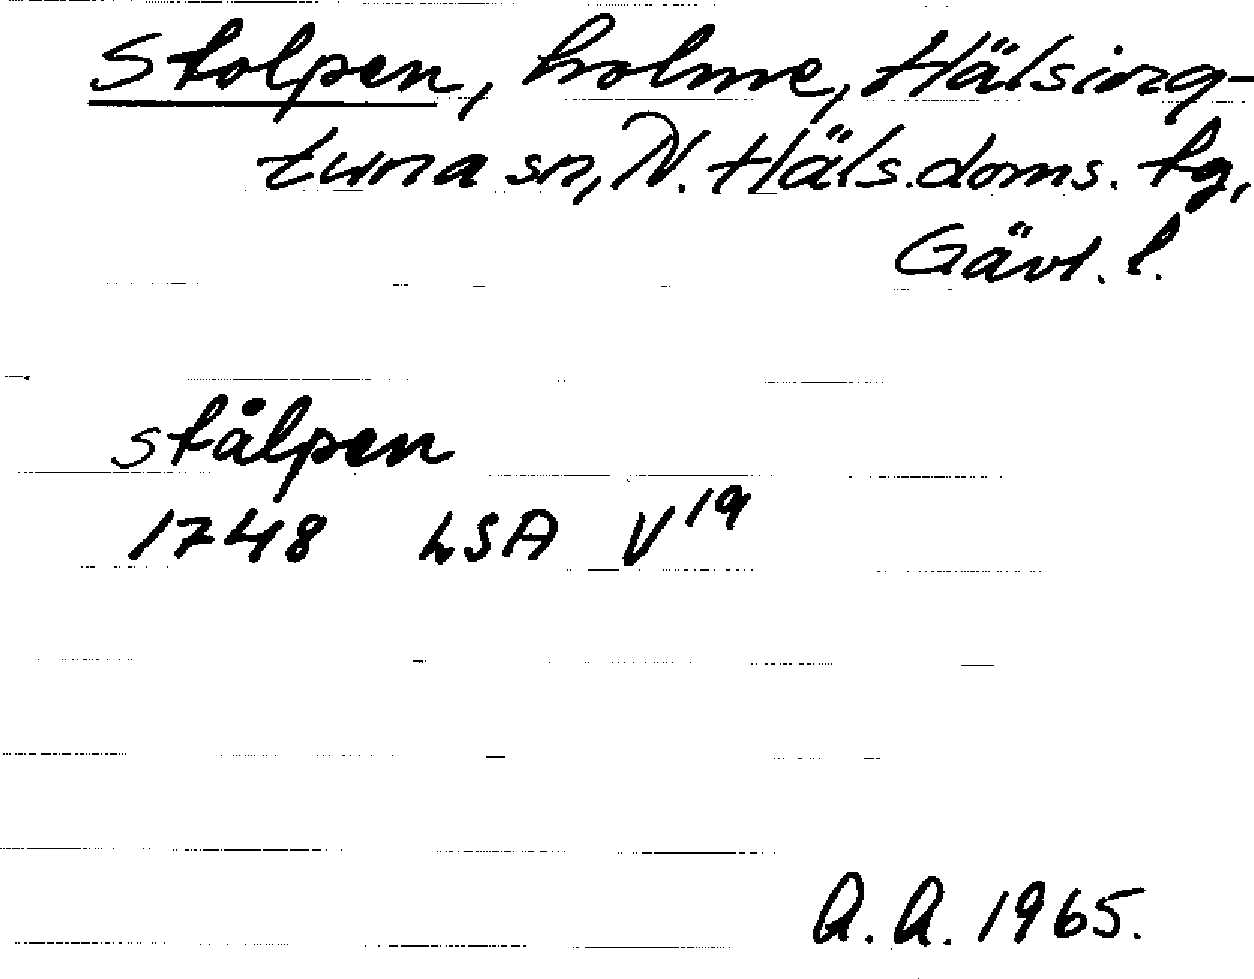 Stolpen, holme, Hälsing-
tuna sn, N. Häls. doms. tg,
Gävl. l.
stålpen
1748 LSA V 19
A. A. 1965.